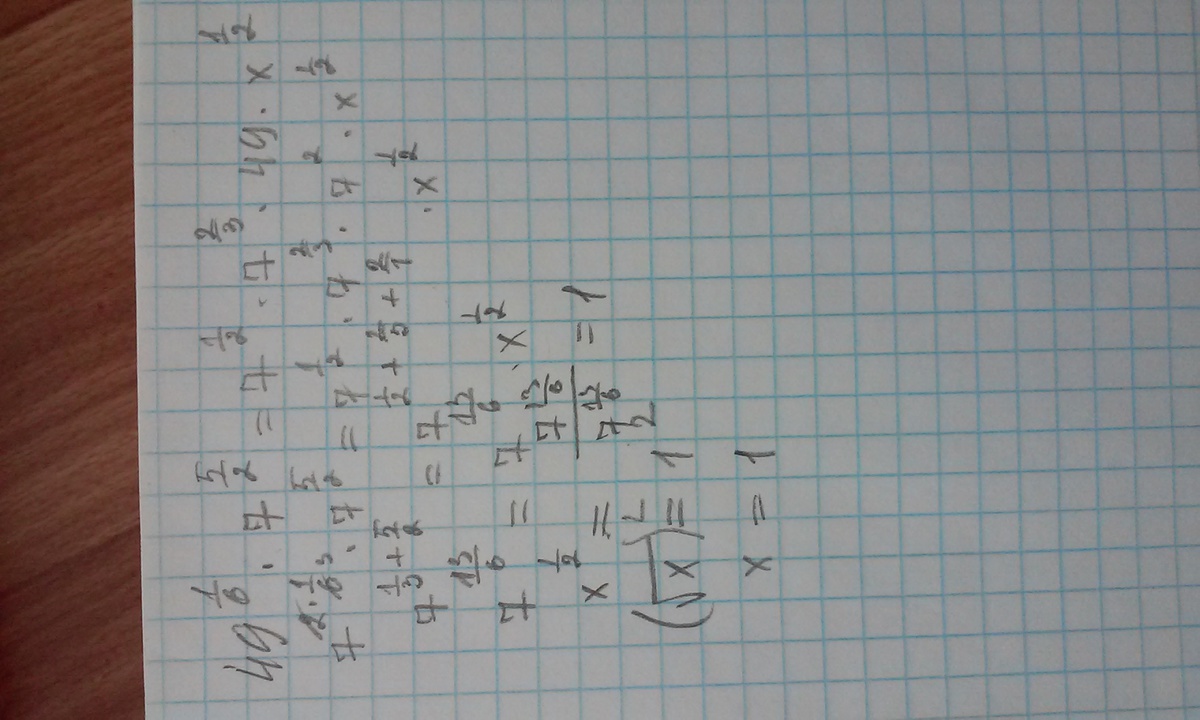 49^(1/6) · 7^(5/2) = 7^(1/2) · 7^(2/3) · 49 · x^(1/2)
7^(2·1/6) · 7^(5/2) = 7^(1/2) · 7^(2/3) · 7^2 · x^(1/2)
7^(1/3 + 5/2) = 7^(1/2 + 1/3 + 2/1) · x^(1/2)
7 = 7 · x^(1/2)
x^(1/2) = 7 / 7 = 1
(√x)^2 = 1^2
x = 1